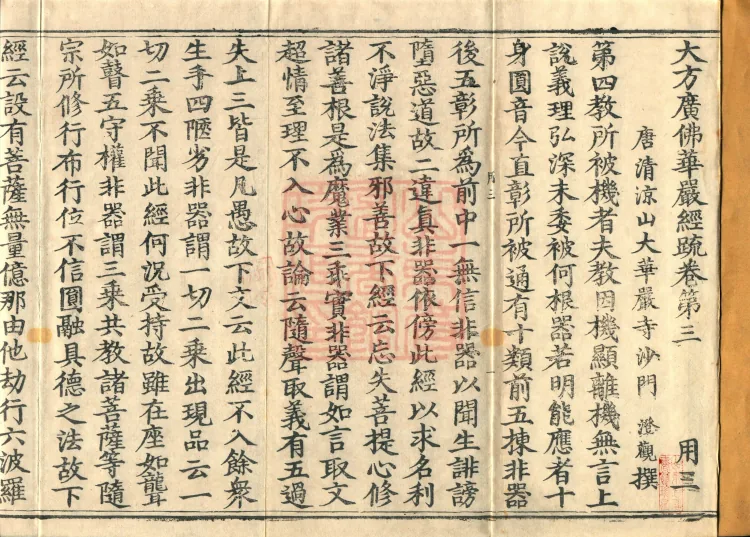 大方廣佛華嚴經䟽卷第三 用三
唐清涼山大華嚴寺沙門 澄觀撰
第四教所被機者夫教因機顯離機無言上
說義理弘深未委被何根器若明能應者十
身圓音今直彰所被通有十類前五揀非器
後五彰所為前中一無信非器以聞生誹謗
墮惡道故二違真非器依傍此經以求名利
不淨說法集邪善故下經云忘失菩提心修
諸善根是為魔業三乖實非器謂如言取文
超情至理不入心故論云隨聲取義有五過
失上三皆是凡愚故下文云此經不入餘衆
生手四陿劣非器謂一切二乘出現品云一
切二乘不聞此經何況受持故雖在座如聾
如瞽五守權非器謂三乘共教諸菩薩等隨
宗所修行布行位不信圓融具德之法故下
經云設有菩薩無量億那由他劫行六波羅